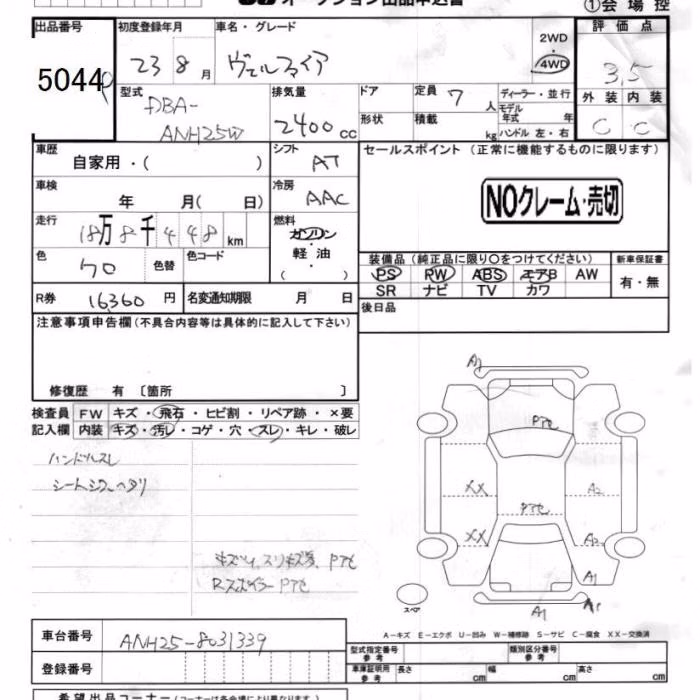 オークション出品申込書
①会場控
出品番号 初度登録年月 車名・グレード 評価点
5044 23 8月 ヴェルファイア 2WD 4WD 3.5
型式 排気量 ドア 定員 7人 ディーラー・並行 外装 内装
DBA- モデル年式 年
ANH25W 2400cc 形状 積載 kg ハンドル 左・右 C C
車歴 シフト セールスポイント（正常に機能するものに限ります）
自家用・（ ） AT
車検 年 月（ 日） 冷房 AAC NOクレーム・売切
走行 18万8千448km 燃料 ガソリン・軽油（ ）
色 70 色替 色コード 装備品（純正品に限り○をつけてください） 新車保証書
PS RW ABS エアB AW 有・無
SR ナビ TV カワ
R券 16360円 名変通知期限 月 日 後日品
注意事項申告欄（不具合内容等は具体的に記入して下さい）
修復歴 有〔箇所 〕
検査員 FW キズ・飛石・ヒビ割・リペア跡・×要
記入欄 内装 キズ・汚レ・コゲ・穴・スレ・キレ・破レ
ハンドルスレ
シートシワ、ヘタリ
A1
Pアセ
XX A2
Pアセ
XX A2
A1
A1 A1
スペア
キズ凹、スリキズ多、Pアセ
RスポイラーPアセ
A－キズ E－エクボ U－凹み W－補修跡 S－サビ C－腐食 XX－交換済
車台番号 ANH25-8031339
型式指定番号 参考 類別区分番号 参考
登録番号 車庫証明用 参考 長さ cm 幅 cm 高さ cm
希望出品コーナー（コーナーは各会場により異なります）